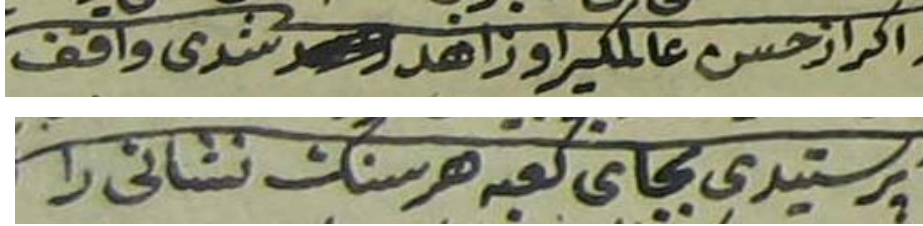 اکر از حسن عالمکیر او زاهد شدی واقف
پرستیدی بجای کعبه هر سنک نشانی را